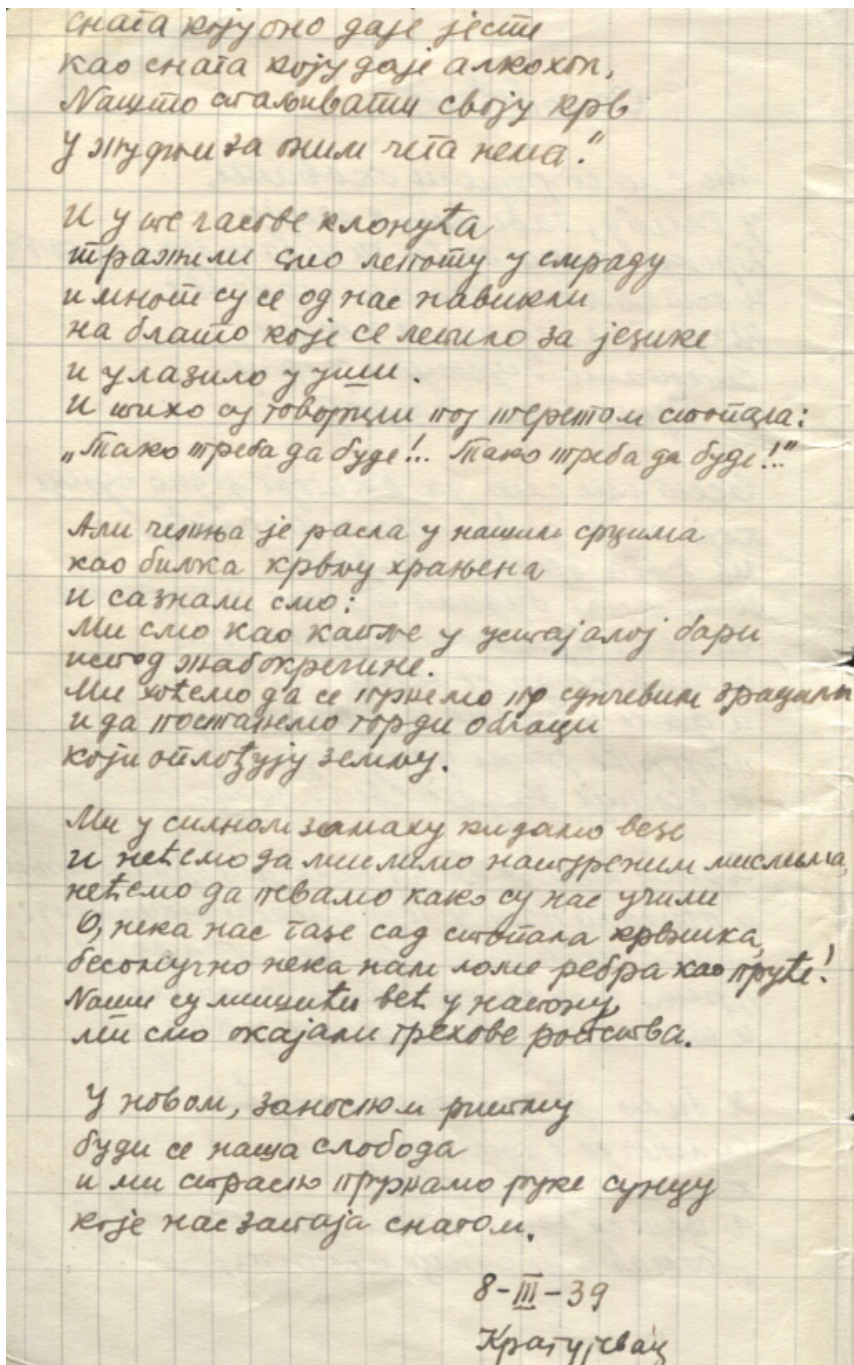 снага коју оно даје јесте
као снага коју даје алкохол,
Нашто стављивати своју крв
у жудњи за оним чега нема."
И у те часове клонућа
тражили смо лепоту у смраду
и многи су се од нас навикли
на блато које се лепило за језике
и улазило у уши.
И тихо су говорили под теретом стопала:
„Тако треба да буде!.. Тако треба да буде!"
Али чежња је расла у нашим срцима
као биљка крвљу храњена
и сазнали смо:
Ми смо као капље у устајалој бари
испод жабокречине.
Ми хоћемо да се пружимо по сунчевим зрацима
и да постанемо горди облаци
који оплођују земљу.
Ми у силном замаху кидамо везе
и нећемо да мислимо наспреженим мислима,
нећемо да певамо како су нас учили
О, нека нас газе сад стопала крвника,
бесомучно нека нам ломе ребра као пруће!
Наши су мишићи већ у напону,
ми смо окајали грехове ропства.
У новом, заносном ритму
буди се наша слобода
и ми страсно пружамо руке сунцу
које нас запаја снагом.
8-III-39
Крагујевац